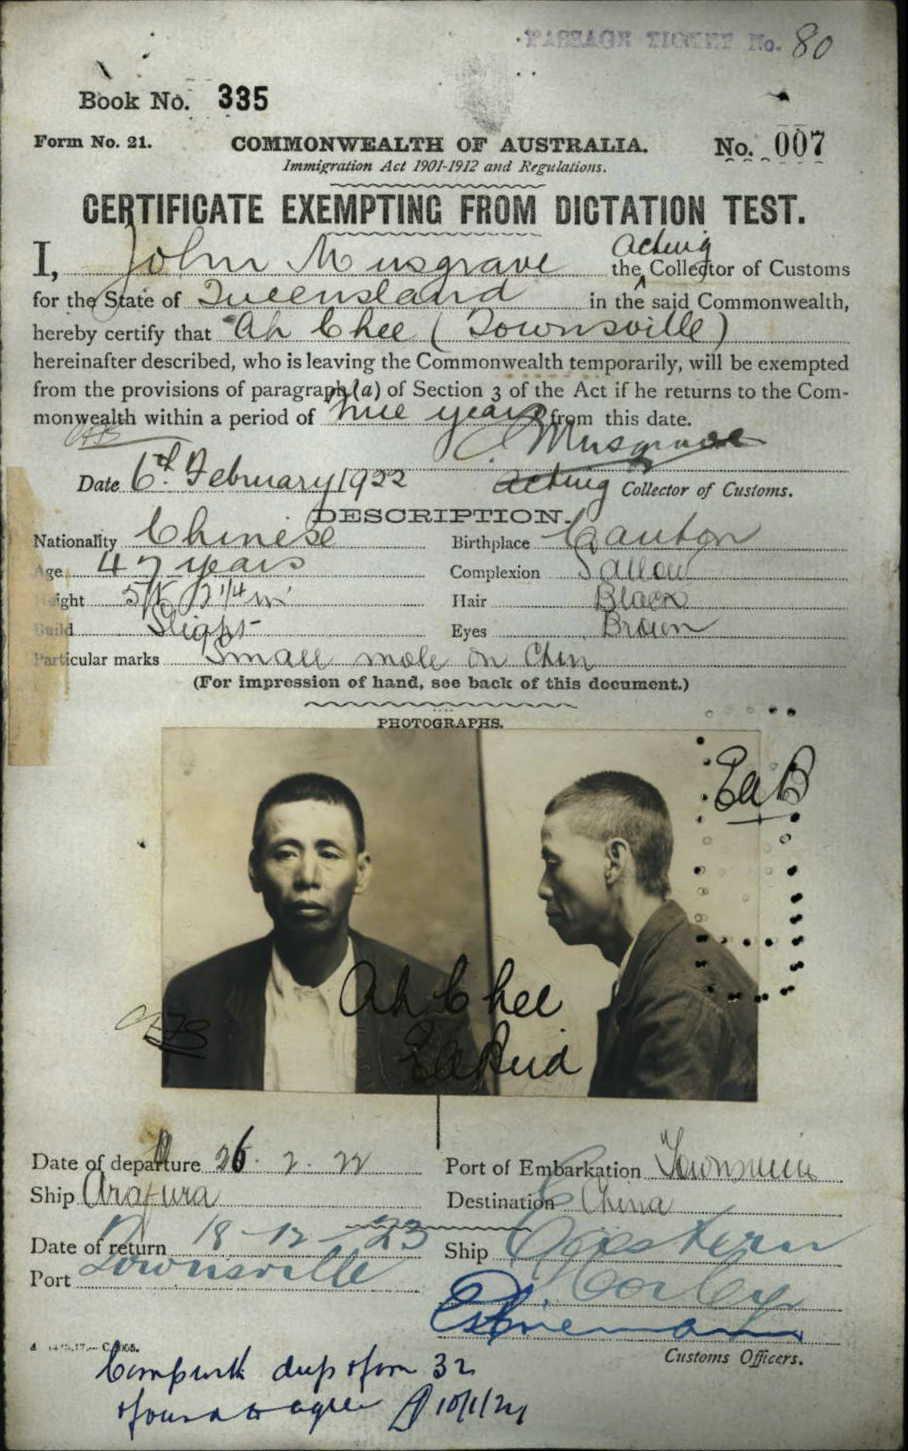 PASSAGE TICKET No. 80
Book No. 335
Form No. 21.
COMMONWEALTH OF AUSTRALIA.
No. 007
Immigration Act 1901-1912 and Regulations.
CERTIFICATE EXEMPTING FROM DICTATION TEST.
acting
I, John Musgrave the Collector of Customs
for the State of Queensland in the said Commonwealth,
hereby certify that Ah Chee (Townsville)
hereinafter described, who is leaving the Commonwealth temporarily, will be exempted
from the provisions of paragraph (a) of Section 3 of the Act if he returns to the Com-
monwealth within a period of three years from this date.
J Musgrave
Date 6th February 1922 acting Collector of Customs.
DESCRIPTION.
Nationality Chinese Birthplace Canton
Age 47 years Complexion Sallow
Height 5ft 2 1/4 in Hair Black
Build Slight Eyes Brown
Particular marks Small mole on Chin
(For impression of hand, see back of this document.)
PHOTOGRAPHS.
Ah Chee
Date of departure 26. 2. 22 Port of Embarkation Townsville
Ship Arafura Destination China
Date of return 18-12-23 Ship Eastern
Port Townsville
Customs Officers.
Comp with dup of form 32
found to agree 10/1/24